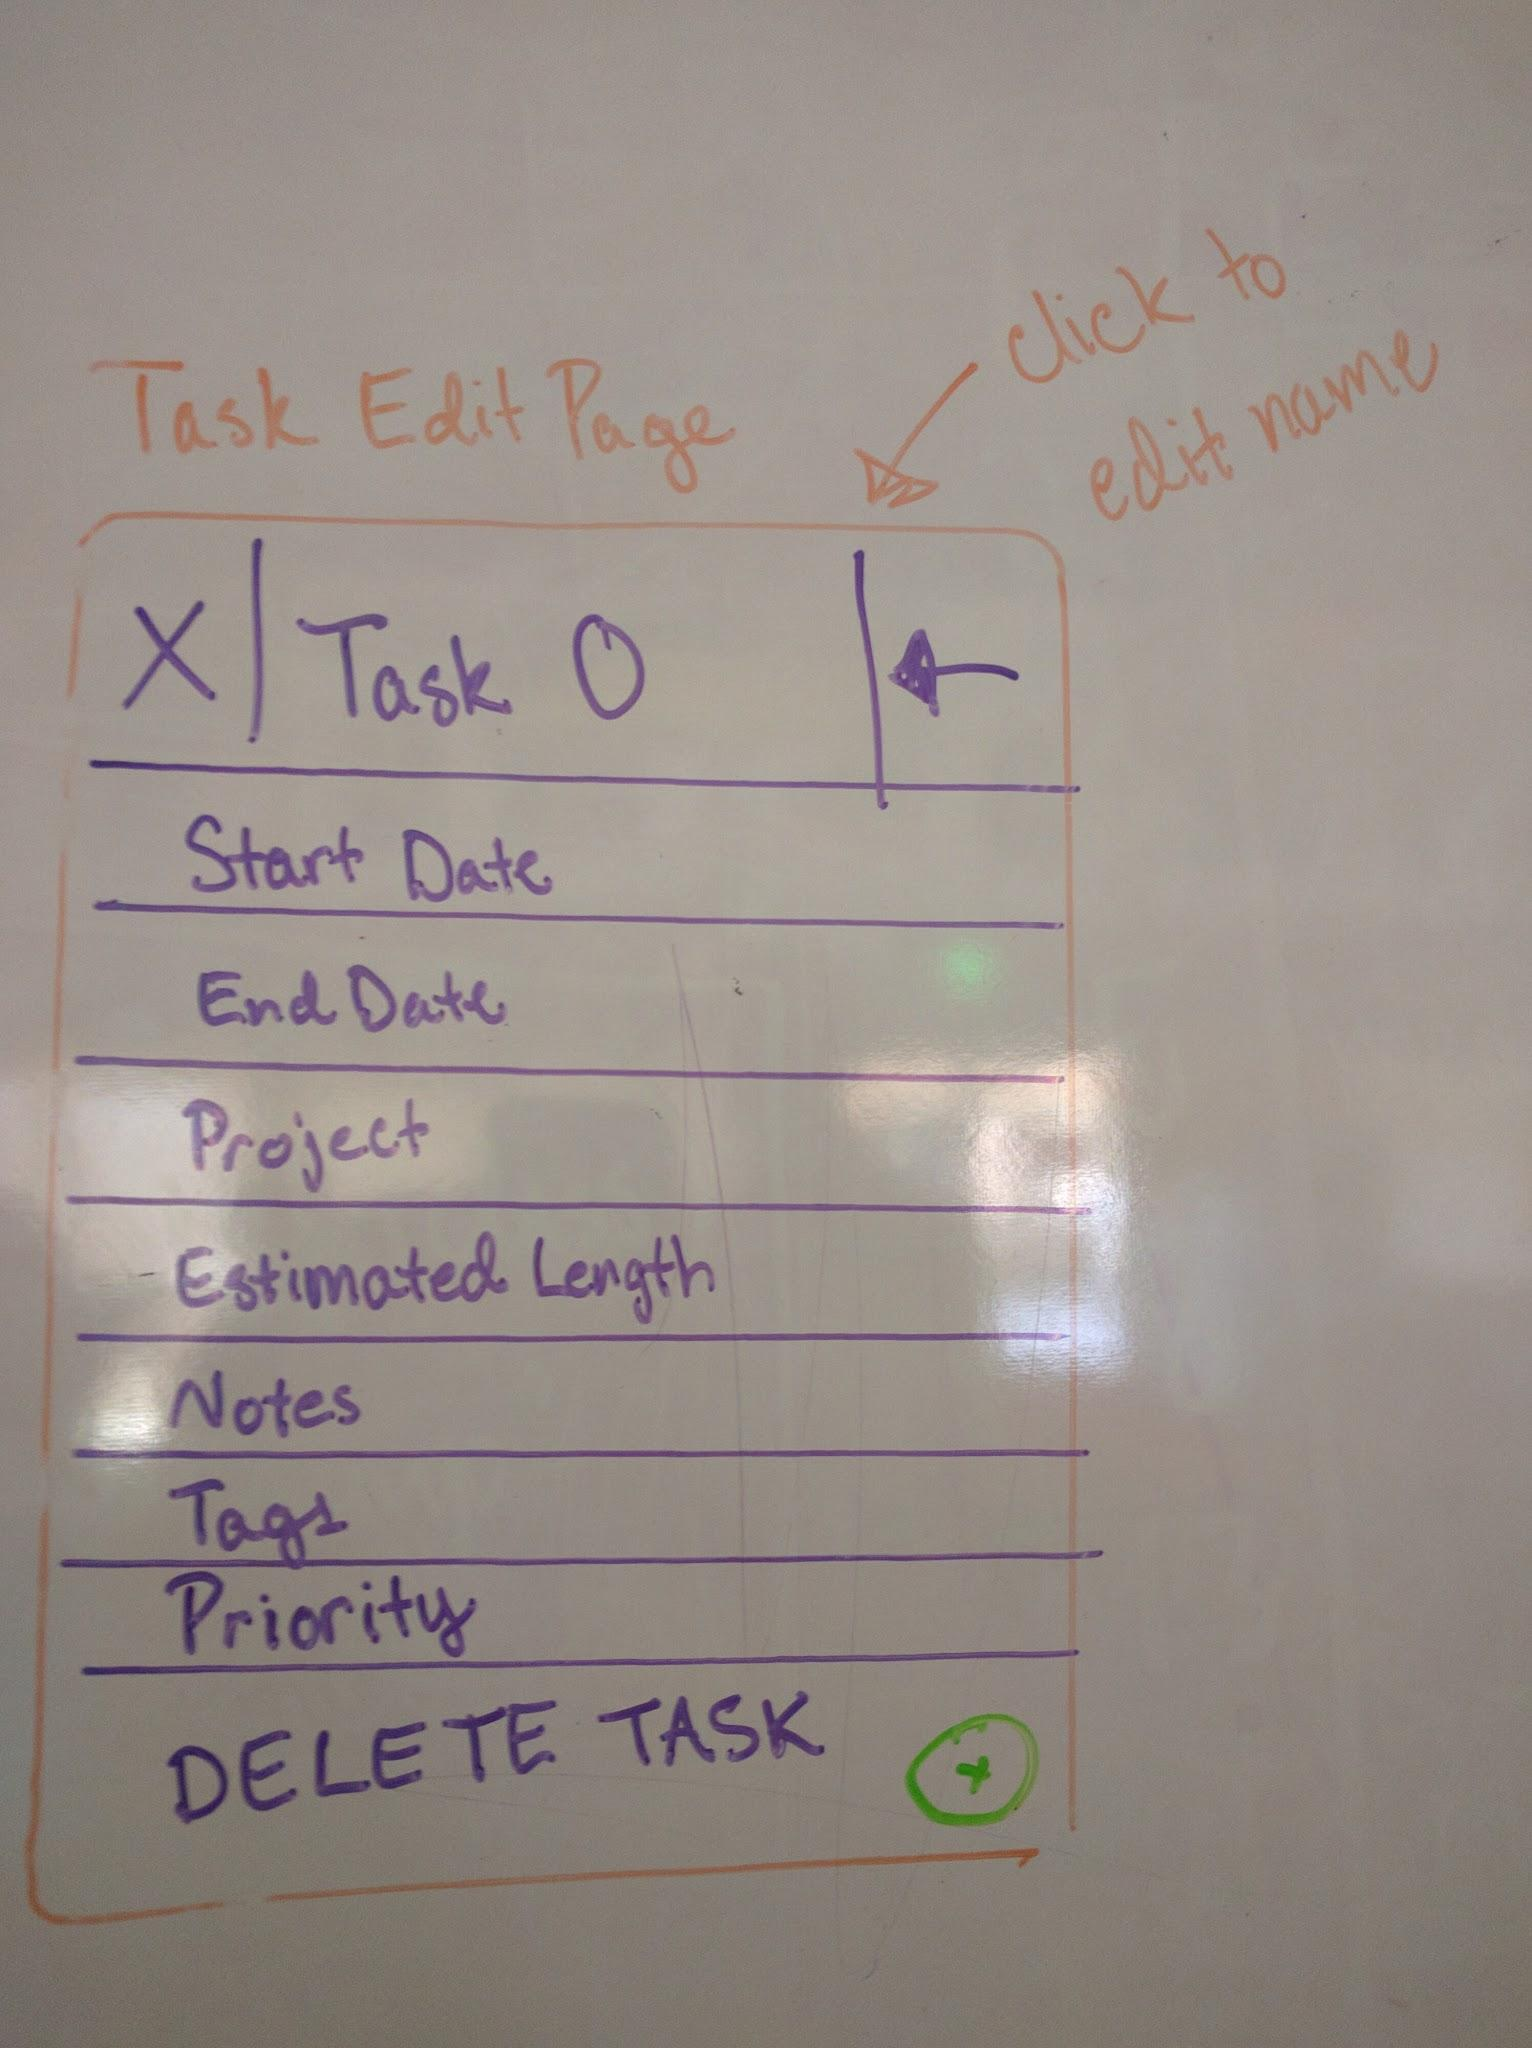 click to
edit name
Task Edit Page
X Task 0
Start Date
End Date
Project
Estimated Length
Notes
Tags
Priority
DELETE TASK +